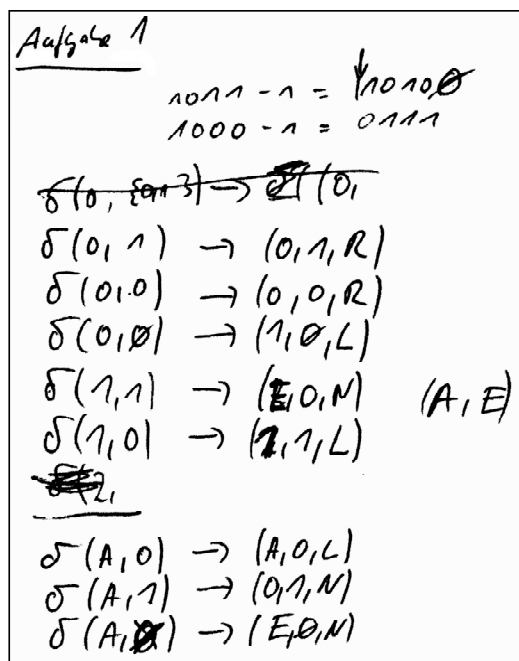 Aufgabe 1
1011 - 1 = 1010Ø
1000 - 1 = 0111
δ(0, {0,1}) → (0,
δ(0,1) → (0,1,R)
δ(0,0) → (0,0,R)
δ(0,Ø) → (1,Ø,L)
δ(1,1) → (E,0,N) (A,E)
δ(1,0) → (1,1,L)
δ(2,
δ(A,0) → (A,0,L)
δ(A,1) → (0,1,N)
δ(A,Ø) → (E,Ø,N)